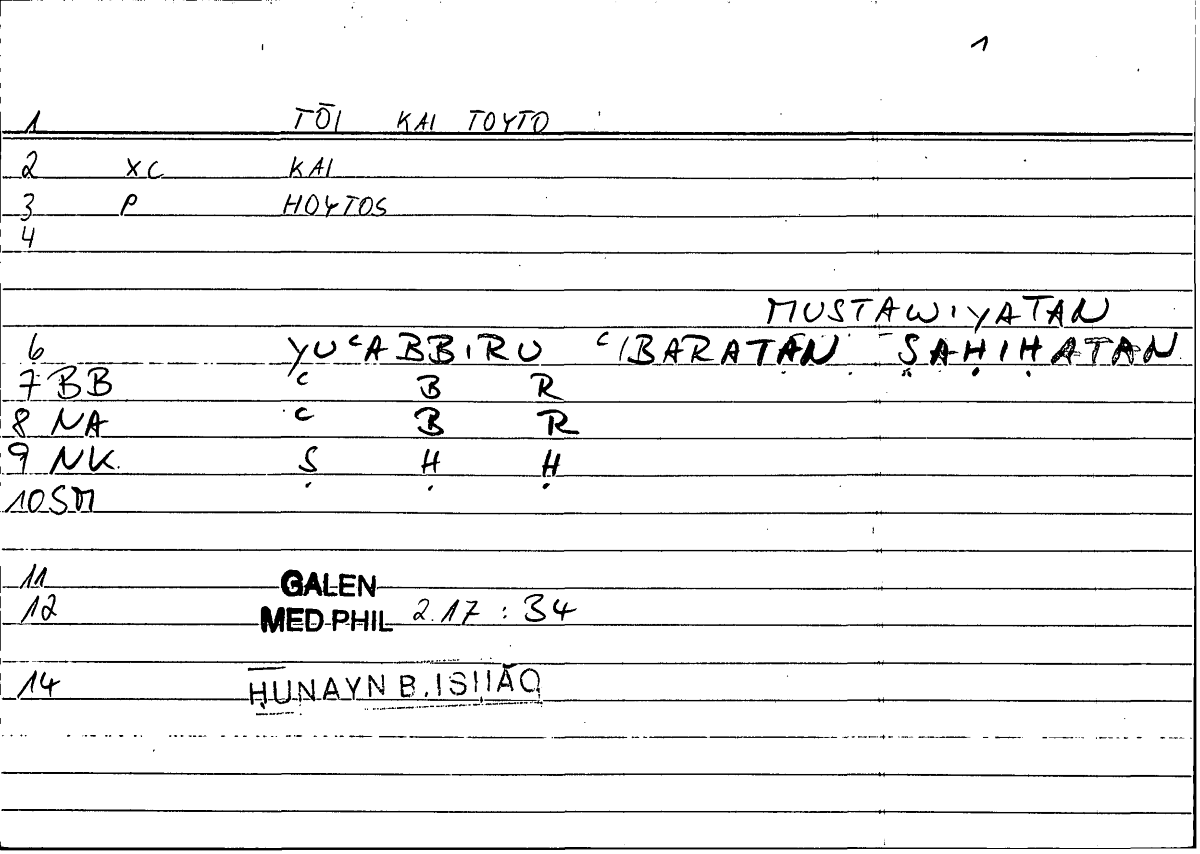 1
1 TŌI KAI TOYTO
2 XC KAI
3 P HOYTOS
4
MUSTAWIYATAN
6 YUʿABBIRU ʿIBARATAN ṢAḤIḤATAN
7 BB ʿ B R
8 NA ʿ B R
9 NK Ṣ Ḥ Ḥ
10 SM
11 GALEN
12 MED PHIL 2.17 : 34
14 ḤUNAYN B. ISḤĀQ